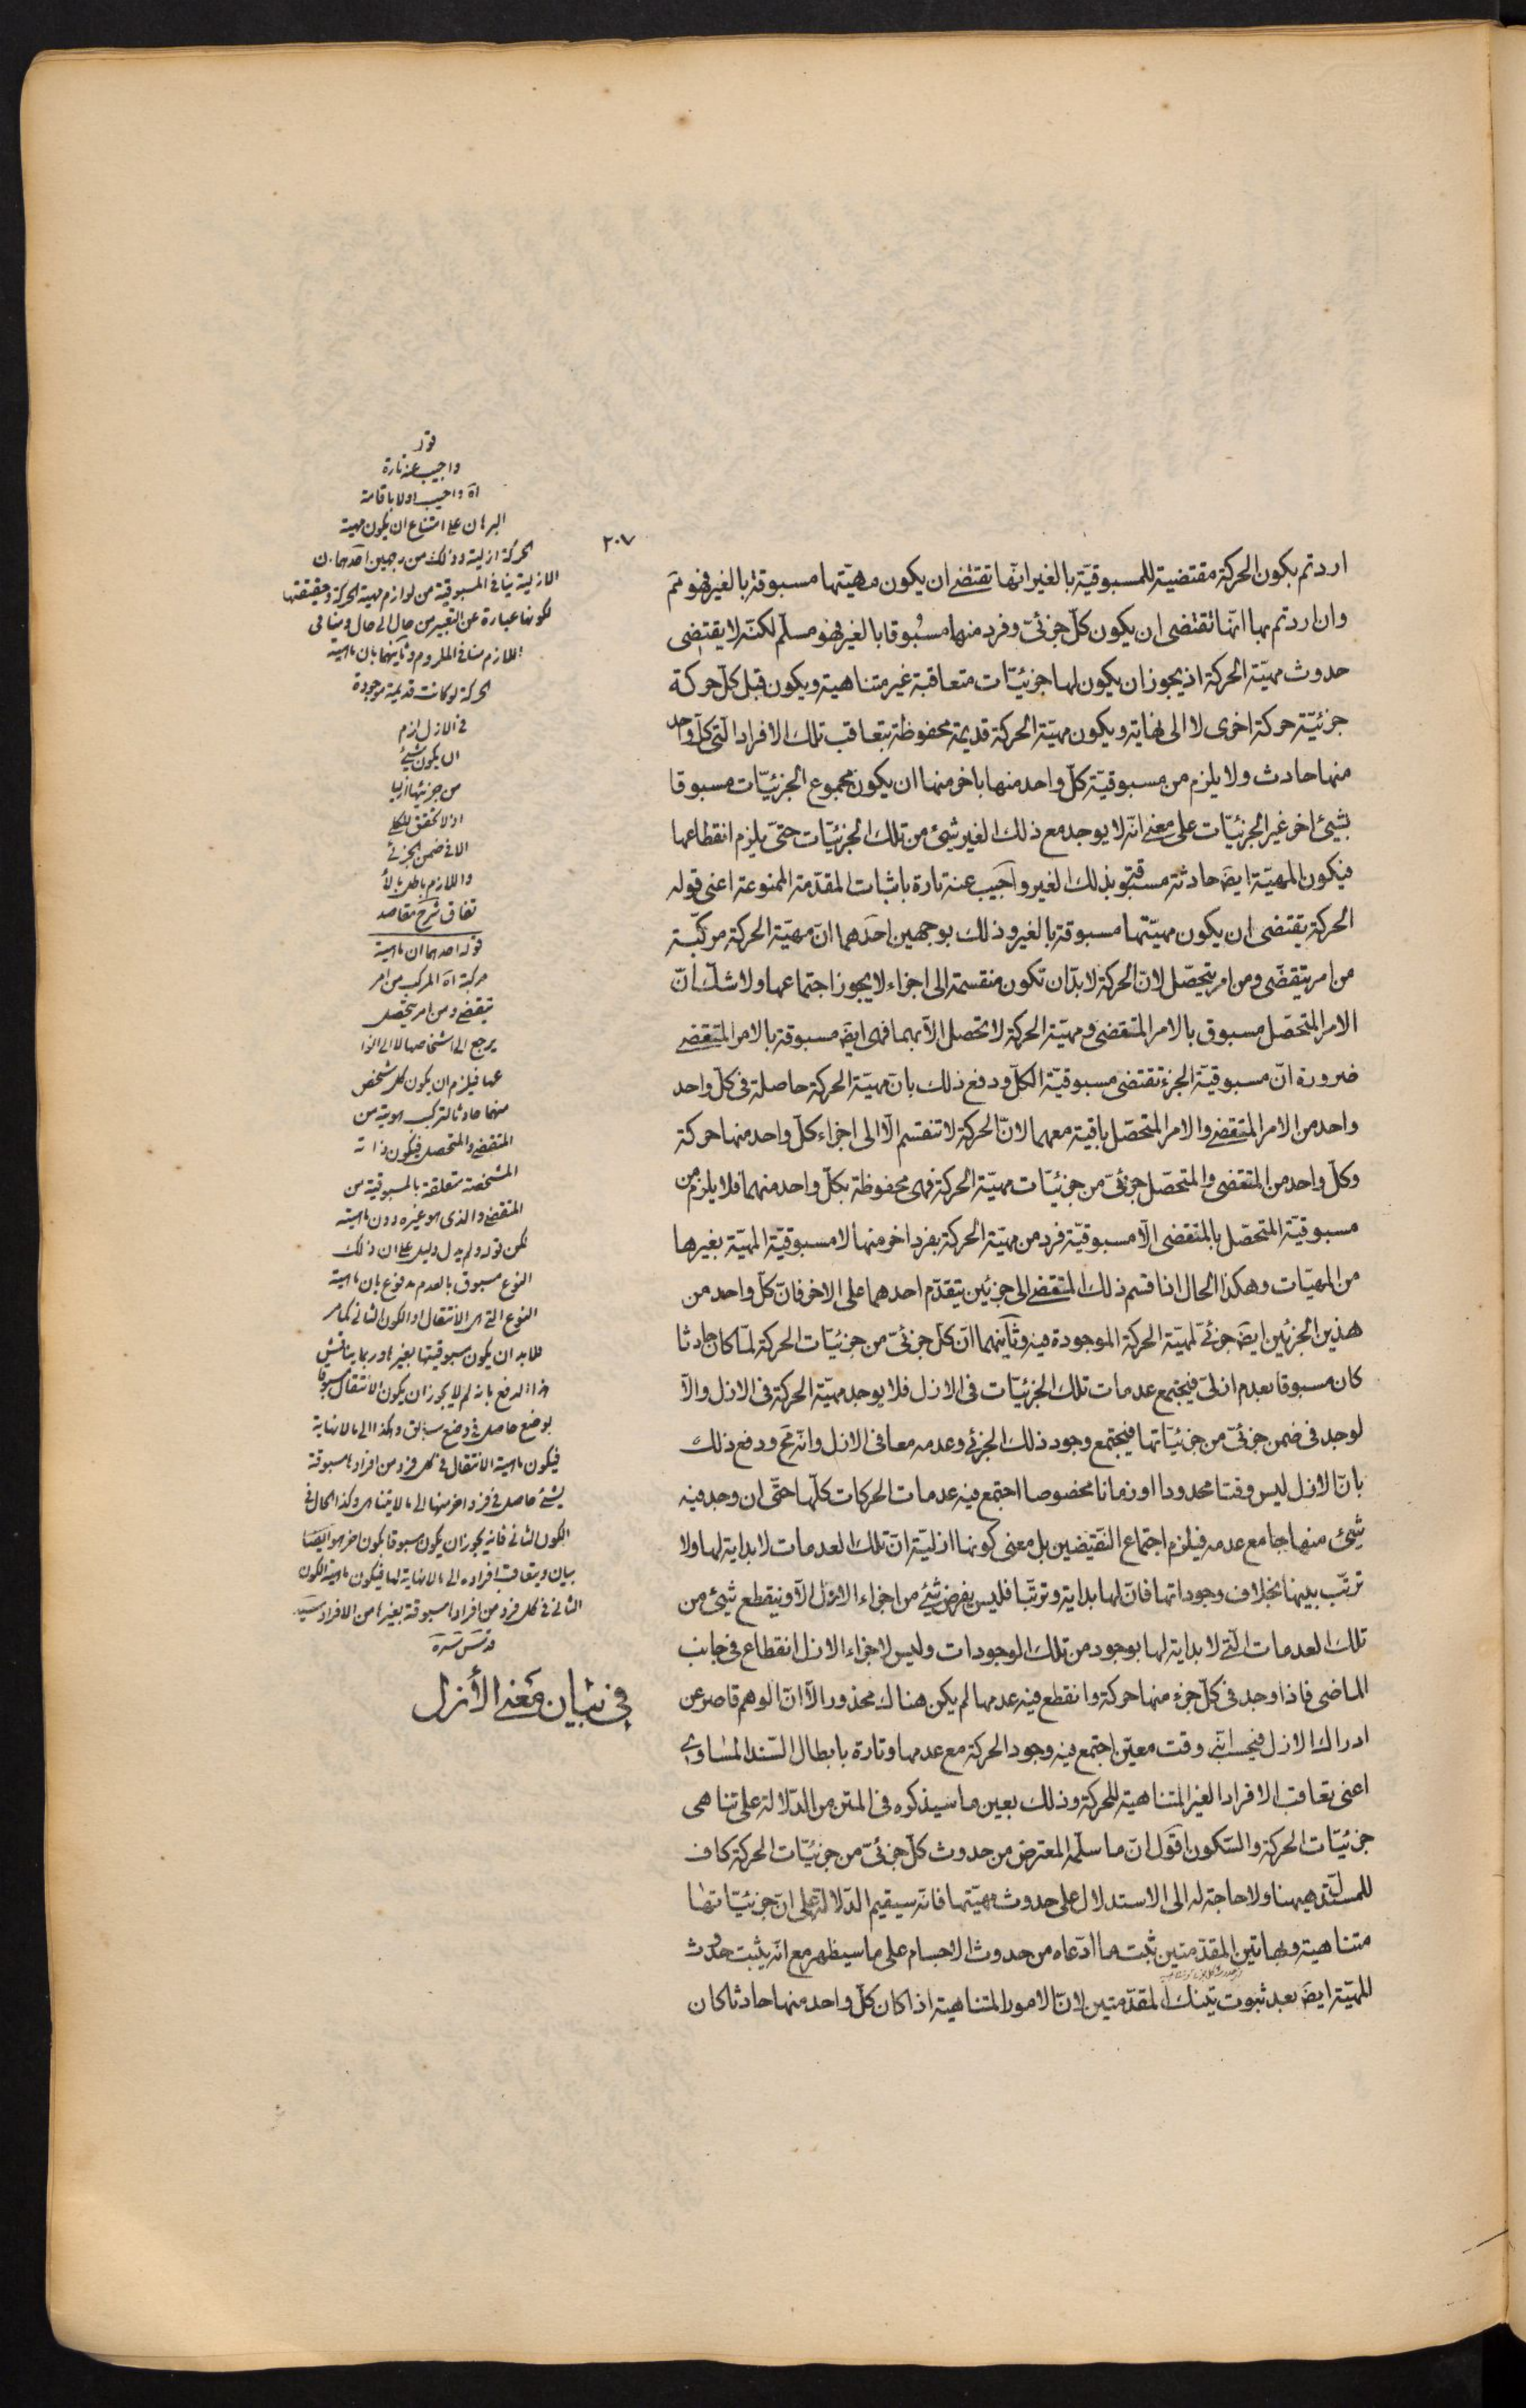 ٢٠٧
اردتم بكون الحركة مقتضية للمسبوقيّة بالغير انّها تقتضي ان يكون مهيّتها مسبوقة بالغير فهو مم
وان اردتم بها انّها تقتضى ان يكون كلّ جزئىّ وفرد منها مسبوقا بالغير فهو مسلّم لكنّه لا يقتضى
حدوث مهيّة الحركة اذ يجوز ان يكون لها جزئيّات متعاقبة غير متناهية ويكون قبل كلّ حركة
جزئيّة حركة اخرى لا الى نهاية ويكون مهيّة الحركة قديمة محفوظة بتعاقب تلك الافراد الّتى كلّ واحد
منها حادث ولا يلزم من مسبوقيّة كلّ واحد منها باخر منها ان يكون مجموع الجزئيّات مسبوقا
بشيئ اخر غير الجزئيّات على معنى انّه لا يوجد مع ذلك الغير شيئ من تلك الجزئيّات حتّى يلزم انقطاعها
فيكون المهيّة ايضَ حادثة مسبوقة بذلك الغير واجيب عنه تارة باثبات المقدّمة الممنوعة اعنى قوله
الحركة يقتضى ان يكون مهيّتها مسبوقة بالغير وذلك بوجهين احدهما انّ مهيّة الحركة مركّبة
من امر يتقضّى ومن امر يتحصّل لانّ الحركة لا بدّ ان تكون منقسمة الى اجزاء لا يجوز اجتماعها ولا شكّ انّ
الامر المتحصّل مسبوق بالامر المتقضى ومهيّة الحركة لا تحصل الّا بهما فهى ايضَ مسبوقة بالامر المتقضي
ضرورة انّ مسبوقيّة الجزء تقتضى مسبوقيّة الكلّ ودفع ذلك بانّ مهيّة الحركة حاصلة فى كلّ واحد
واحد من الامر المتقضي والامر المتحصّل باقية معهما لانّ الحركة لا تنقسم الّا الى اجزاء كلّ واحد منها حركة
وكلّ واحد من المتقضى والمتحصّل جزئىّ من جزئيّات مهيّة الحركة فهى محفوظة بكلّ واحد منهما فلا يلزم من
مسبوقيّة المتحصّل بالمتقضى الّا مسبوقيّة فرد من مهيّة الحركة بفرد اخر منها لا مسبوقيّة المهيّة بغيرها
من المهيّات وهكذا الحال اذا قسم ذلك المتقضي الى جزئين يتقدّم احدهما على الاخر فانّ كلّ واحد من
هذين الجزئين ايضَ جزئىّ لمهيّة الحركة الموجودة فيه وثانيهما انّ كلّ جزئىّ من جزئيّات الحركة لمّا كان حادثا
كان مسبوقا بعدم ازلىّ فيجتمع عدمات تلك الجزئيّات فى الازل فلا يوجد مهيّة الحركة فى الازل والّا
لوجد فى ضمن جزئىّ من جزئيّاتها فيجتمع وجود ذلك الجزئى وعدمه معا فى الازل وانّه مح ودفع ذلك
بانّ الازل ليس وقتا محدودا او زمانا مخصوصا اجتمع فيه عدمات الحركات كلّها حتّى ان وجد فيه
شيئ منها جامع عدمه فيلزم اجتماع النّقيضين بل معنى كونها ازليّة انّ تلك العدمات لا بداية لها ولا
ترتّب بينها بخلاف وجوداتها فانّ لها بداية وترتّبا فليس بفرض شيئ من اجزاء الازل الّا وينقطع شيئ من
تلك العدمات الّتى لا بداية لها بوجود من تلك الوجودات وليس لاجزاء الازل انقطاع فى جانب
الماضى فاذا وجد فى كلّ جزء منها حركة وانقطع فيه عدمها لم يكن هناك محذور الّا انّ الوهم قاصر عن
ادراك الازل فيحسب انّه وقت معيّن اجتمع فيه وجود الحركة مع عدمها وتارة بابطال السّند المساوي
اعنى تعاقب الافراد الغير المتناهية للحركة وذلك بعين ما سيذكره فى المتن من الدّلالة على تناهى
جزئيّات الحركة والسّكون اقول انّ ما سلّمه المعترض من حدوث كلّ جزئىّ من جزئيّات الحركة كاف
للمستدلّ هيهنا ولا حاجة له الى الاستدلال على حدوث مهيّتها فانّه سيقيم الدّلالة على انّ جزئيّاتها
متناهية وبهاتين المقدّمتين ثبت ما ادّعاه من حدوث الاجسام على ما سيظهر مع انّه يثبت حدوث
المهيّة ايضَ بعد ثبوت تينك المقدّمتين لانّ الامور المتناهية اذا كان كلّ واحد منها حادثا كان
قوله
واجيب عنه تارة
آه واجيب اولا باقامة
البرهان على امتناع ان يكون مهية
الحركة ازلية وذلك من وجهين احدهما ان
الازلية ينافى المسبوقية من لوازم مهية الحركة وحقيقتها
لكونها عبارة عن التغير من حال الى حال ومنافى
اللازم مناف الملزوم وثانيهما بان ماهية
الحركة لو كانت قديمة موجودة
فى الازل لزم
ان يكون شيئ
من جزئيها ازليا
اذ لا تحقق للكلى
الا فى ضمن الجزئى
واللازم باطل بالا
تفاق شرح مقاصد
قوله احدهما ان ماهية
مركبة آه المركب من امر
يتقضى ومن امر يتحصل
يرجع الى اشخاصها لا الى انوا
عها فيلزم ان يكون كل شخص
منهما حادثا لتركب هويته من
المتقضى والمتحصل فيكون ذاته
المشخصة متعلقة بالمسبوقية من
المتقضى والذى هو غيره دون ماهيته
لكن قوله ولم يدل دليل على ان ذلك
النوع مسبوق بالعدم مدفوع بان ماهية
النوع التى هى الانتقال او الكون الثانى كما مر
لا بد ان يكون مسبوقيتها بغيرها وربما يناقش
هذا الدفع بانه لم لا يجوز ان يكون الانتقال مسبوقا
بوضع حاصل فى وضع سابق وهكذا الى ما لا نهاية
فيكون ماهية الانتقال فى كل فرد من افرادها مسبوقة
بشيئ حاصل فى فرد اخر منها الى ما لا يتناهى وكذا الحال فى
الكون الثانى فانه يجوز ان يكون مسبوقا بكون اخر هو ايضا
بيان ويتعاقب افراده الى ما لا نهاية لها فيكون ماهية الكون
الثانى فى كل فرد من افرادها مسبوقة بغيرها من الافراد سيد
قدس سره
فى بيان معنى الأزل